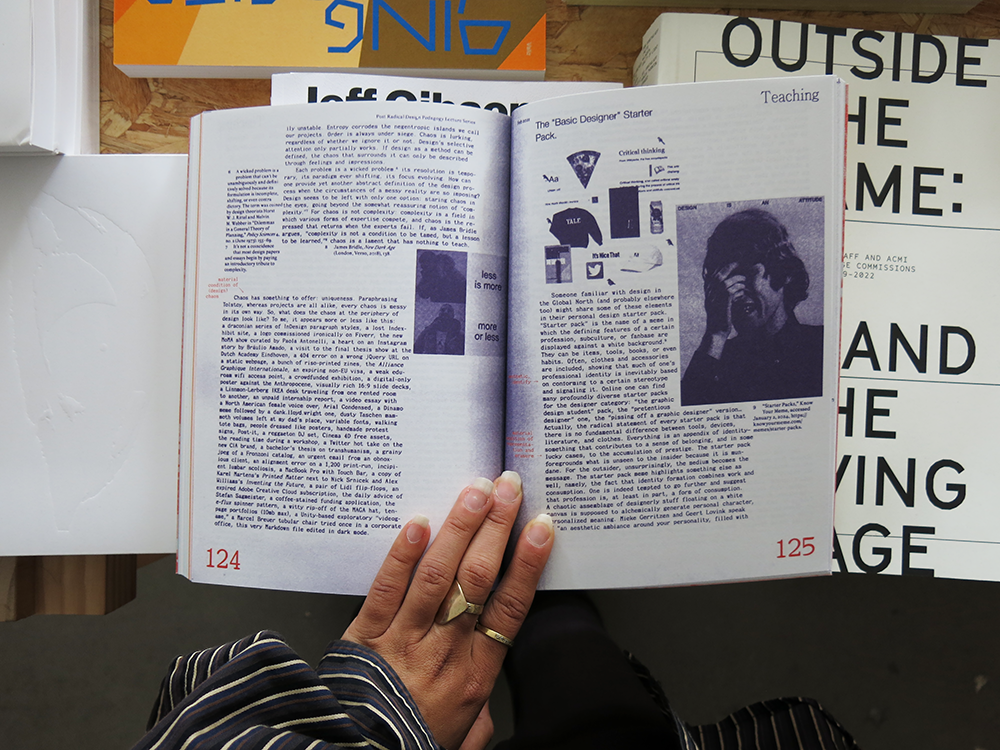 Jeff Gibson
OUTSIDE
THE
AME:
AFF AND ACMI
E COMMISSIONS
9-2022
AND
HE
VING
AGE
Post Radical Design Pedagogy Lecture Series
ily unstable. Entropy corrodes the negentropic islands we call
our projects. Order is always under siege. Chaos is lurking,
regardless of whether we ignore it or not. Design's selective
attention only partially works. If design as a method can be
defined, the chaos that surrounds it can only be described
through feelings and impressions.
Each problem is a wicked problem⁶ its resolution is tempo-
rary, its paradigm ever shifting, its focus evolving. How can
one provide yet another abstract definition of the design pro-
cess when the circumstances of a messy reality are so imposing?
Design seems to be left with only one option: staring chaos in
the eyes, going beyond the somewhat reassuring notion of "com-
plexity."⁷ For chaos is not complexity: complexity is a field in
which various forms of expertise compete, and chaos is the re-
pressed that returns when the experts fail. If, as James Bridle
argues, "complexity is not a condition to be tamed, but a lesson
to be learned,"⁸ chaos is a lament that has nothing to teach.
6 A wicked problem is a
problem that can't be
unambiguously and defin-
itively solved because its
formulation is incomplete,
shifting, or even contra-
dictory. The term was coined
by design theorists Horst
W. J. Rittel and Melvin
M. Webber in "Dilemmas
in a General Theory of
Planning," Policy Sciences 4,
no. 2 (June 1973): 155–69.
7 It's not a coincidence
that most design papers
and essays begin by paying
an introductory tribute to
complexity.
8 James Bridle, New Dark Age
(London, Verso, 2018), 136.
material
condition of
(design)
chaos
less
is more
more
or less
Chaos has something to offer: uniqueness. Paraphrasing
Tolstoy, whereas projects are all alike, every chaos is messy
in its own way. So, what does the chaos at the periphery of
design look like? To me, it appears more or less like this:
a draconian series of InDesign paragraph styles, a lost Index-
hibit site, a logo commissioned ironically on Fiverr, the new
MoMA show curated by Paola Antonelli, a heart on an Instagram
story by Bráulio Amado, a visit to the final thesis show at the
Dutch Academy Eindhoven, a 404 error on a wrong jQuery URL on
a static webpage, a bunch of riso-printed zines, the Alliance
Graphique Internationale, an expiring non-EU visa, a weak edu-
roam wifi access point, a crowdfunded exhibition, a digital-only
poster against the Anthropocene, visually rich 16:9 slide decks,
a Linnmon-Lerberg IKEA desk traveling from one rented room
to another, an unpaid internship report, a video essay with
a North American female voice over, Arial Condensed, a Dinamo
meme followed by a dark.lloyd.wright one, dusty Taschen mam-
moth volumes left at my dad's place, variable fonts, walking
tote bags, people dressed like posters, handmade protest
signs, Post-it, a reggaeton DJ set, Cinema 4D free assets,
the reading time during a workshop, a Twitter hot take on the
new CIA brand, a bachelor's thesis on transhumanism, a grainy
jpeg of a Fronzoni catalog, an urgent email from an obnox-
ious client, an alignment error on a 1,200 print-run, incipi-
ent lumbar scoliosis, a MacBook Pro with Touch Bar, a copy of
Karel Martens's Printed Matter next to Nick Srnicek and Alex
Williams's Inventing the Future, a pair of Lidl flip-flops, an
expired Adobe Creative Cloud subscription, the daily advice of
Stefan Sagmeister, a coffee-stained funding application, the
e-flux salmonner pattern, a witty rip-off of the MAGA hat, ten-
page portfolios (10Mb max), a Unity-based exploratory "videog-
ame," a Marcel Breuer tubular chair tried once in a corporate
office, this very Markdown file edited in dark mode.
124
Teaching
The "Basic Designer" Starter
Pack.
Aa
Critical thinking
YALE
It's Nice That
DESIGN IS AN ATTITUDE
Someone familiar with design in
the Global North (and probably elsewhere
too) might share some of these elements
in their personal design starter pack.
"Starter pack" is the name of a meme in
which the defining features of a certain
profession, subculture, or fanbase are
displayed against a white background.⁹
They can be items, tools, books, or even
habits. Often, clothes and accessories
are included, showing that much of one's
professional identity is inevitably based
on conforming to a certain stereotype
and signaling it. Online one can find
many profoundly diverse starter packs
for the designer category: "the graphic
design student" pack, the "pretentious
designer" one, the "pissing off a graphic designer" version…
Actually, the radical statement of every starter pack is that
there is no fundamental difference between tools, devices,
literature, and clothes. Everything is an appendix of identity—
something that contributes to a sense of belonging, and in some
lucky cases, to the accumulation of prestige. The starter pack
foregrounds what is unseen to the insider because it is mun-
dane. For the outsider, unsurprisingly, the medium becomes the
message. The starter pack meme highlights something else as
well, namely, the fact that identity formation combines work and
consumption. One is indeed tempted to go further and suggest
that profession is, at least in part, a form of consumption.
A chaotic assemblage of designerly stuff floating on a white
canvas is supposed to alchemically generate personal character,
personalized meaning. Mieke Gerritzen and Geert Lovink speak
"an aesthetic ambiance around your personality, filled with
9 "Starter Packs," Know
Your Meme, accessed
January 2, 2022, https://
knowyourmeme.com/
memes/starter-packs.
125